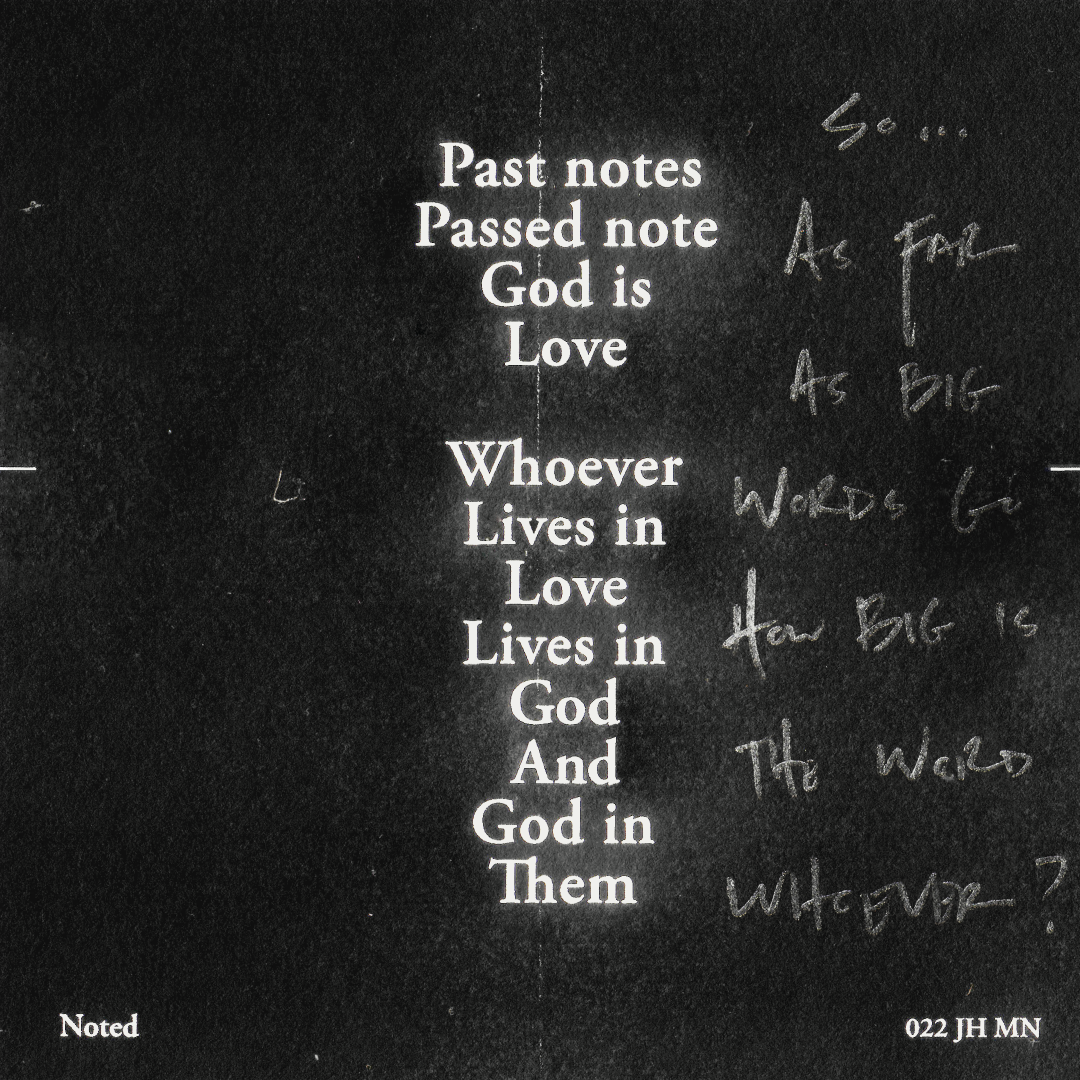 Past notes
Passed note
God is
Love
Whoever
Lives in
Love
Lives in
God
And
God in
Them
So...
As FAR
As BIG
WORDS Go
How BIG is
THe WoRD
WHoEVER?
Noted
022 JH MN